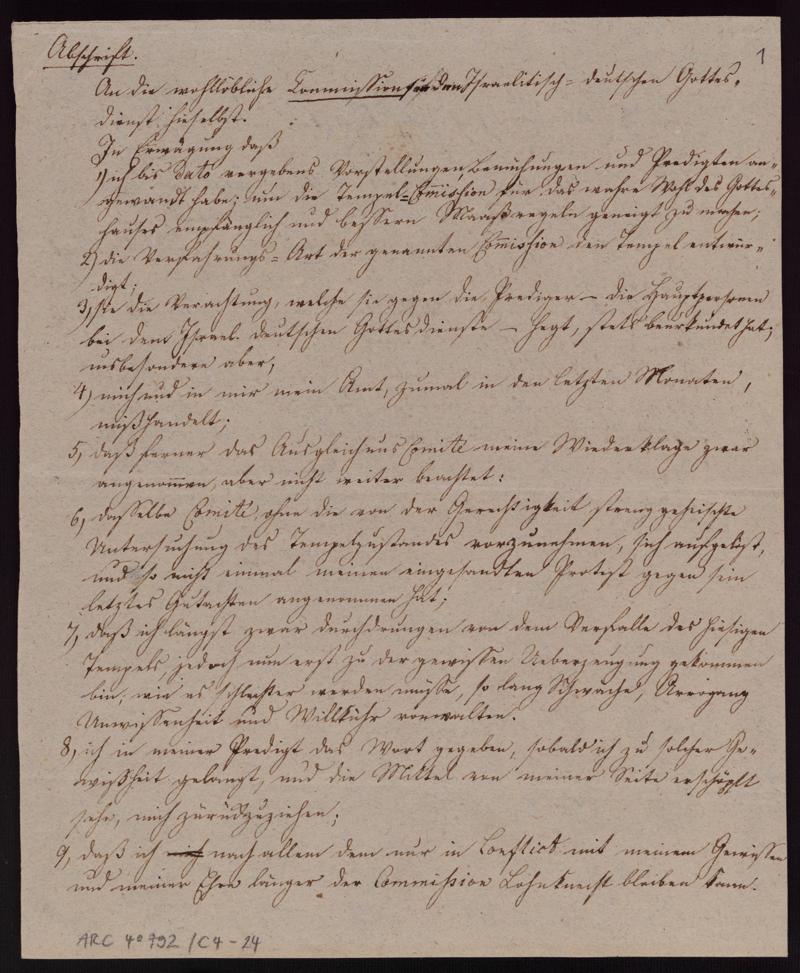 1
Abschrift.
An die wohllöbliche Commission für den Israelitisch= deutschen Gottes=
dienst hieselbst.
In Erwägung daß
1) ich bis dato vergebens Vorstellungen Bemühungen und Predigten an=
gewandt habe; um die Tempel=Comission für das wahre Wohl des Gottes=
hauses empfänglich und bessern Maaßregeln geneigt zu machen;
2) die Verfahrungs= Art der genannten Comission den Tempel entwür=
digt;
3, sie die Verachtung, welche sie gegen die Prediger – die Hauptpersonen
bei dem Israel. deutschen Gottesdienste – hegt, stets beurkundet hat;
insbesondere aber,
4) mich und in mir mein Amt, zumal in den letzten Monaten,
mißhandelt;
5, daß ferner das Ausgleichuns Comitte meine Wiederklage zwar
angenommen, aber nicht weiter beachtet:
6, dasselbe Comité, ohne die von der Gerechtigkeit streng geheischte
Untersuchung des Tempelzustandes vorzunehmen, sich aufgelöst,
und so nicht einmal meinen eingesandten Protest gegen sein
letztes Gutachten angenommen hat;
7, daß ich längst zwar durchdrungen von dem Verfalle des hiesigen
Tempels, jedoch nun erst zu der gewissen Ueberzeugung gekommen
bin, wie es schlechter werden müsse, so lang Schwäche, Arroganz
Unwissenheit und Willkühr vorwalten.
8, ich in meiner Predigt das Wort gegeben, sobald ich zu solcher Ge=
wißheit gelangt, und die Mittel von meiner Seite erschöpft
sehe, mich zurückzuziehen;
9, daß ich nach allem dem nur in Conflict mit meinem Gewissen
und meiner Ehre länger der Commission Lohnknecht bleiben kann.
ARC 4° 792 / C4 - 24